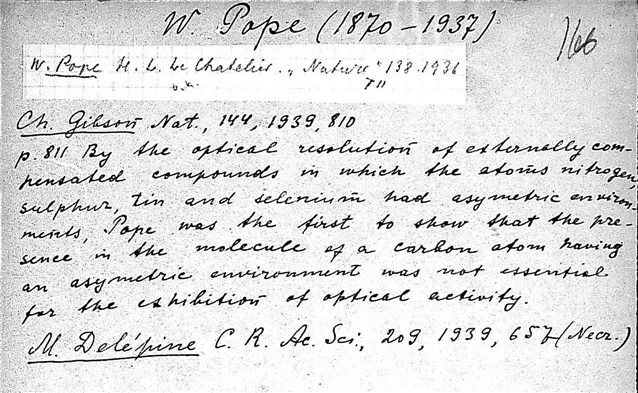 W. Pope (1870-1937)
166
W. Pope H. L. Le Chatelier. „Nature" 138.1936
T II
Ch. Gibson Nat., 144, 1939, 810
p. 811 By the optical resolution of externally com-
pensated compounds in which the atoms nitrogen,
sulphur, tin and selenium had asymetric environ-
ments, Pope was the first to show that the pre-
sence in the molecule of a carbon atom having
an asymetric environment was not essential
for the exhibition of optical activity.
M. Delépine C. R. Ac. Sci., 209, 1939, 657 (Necr.)